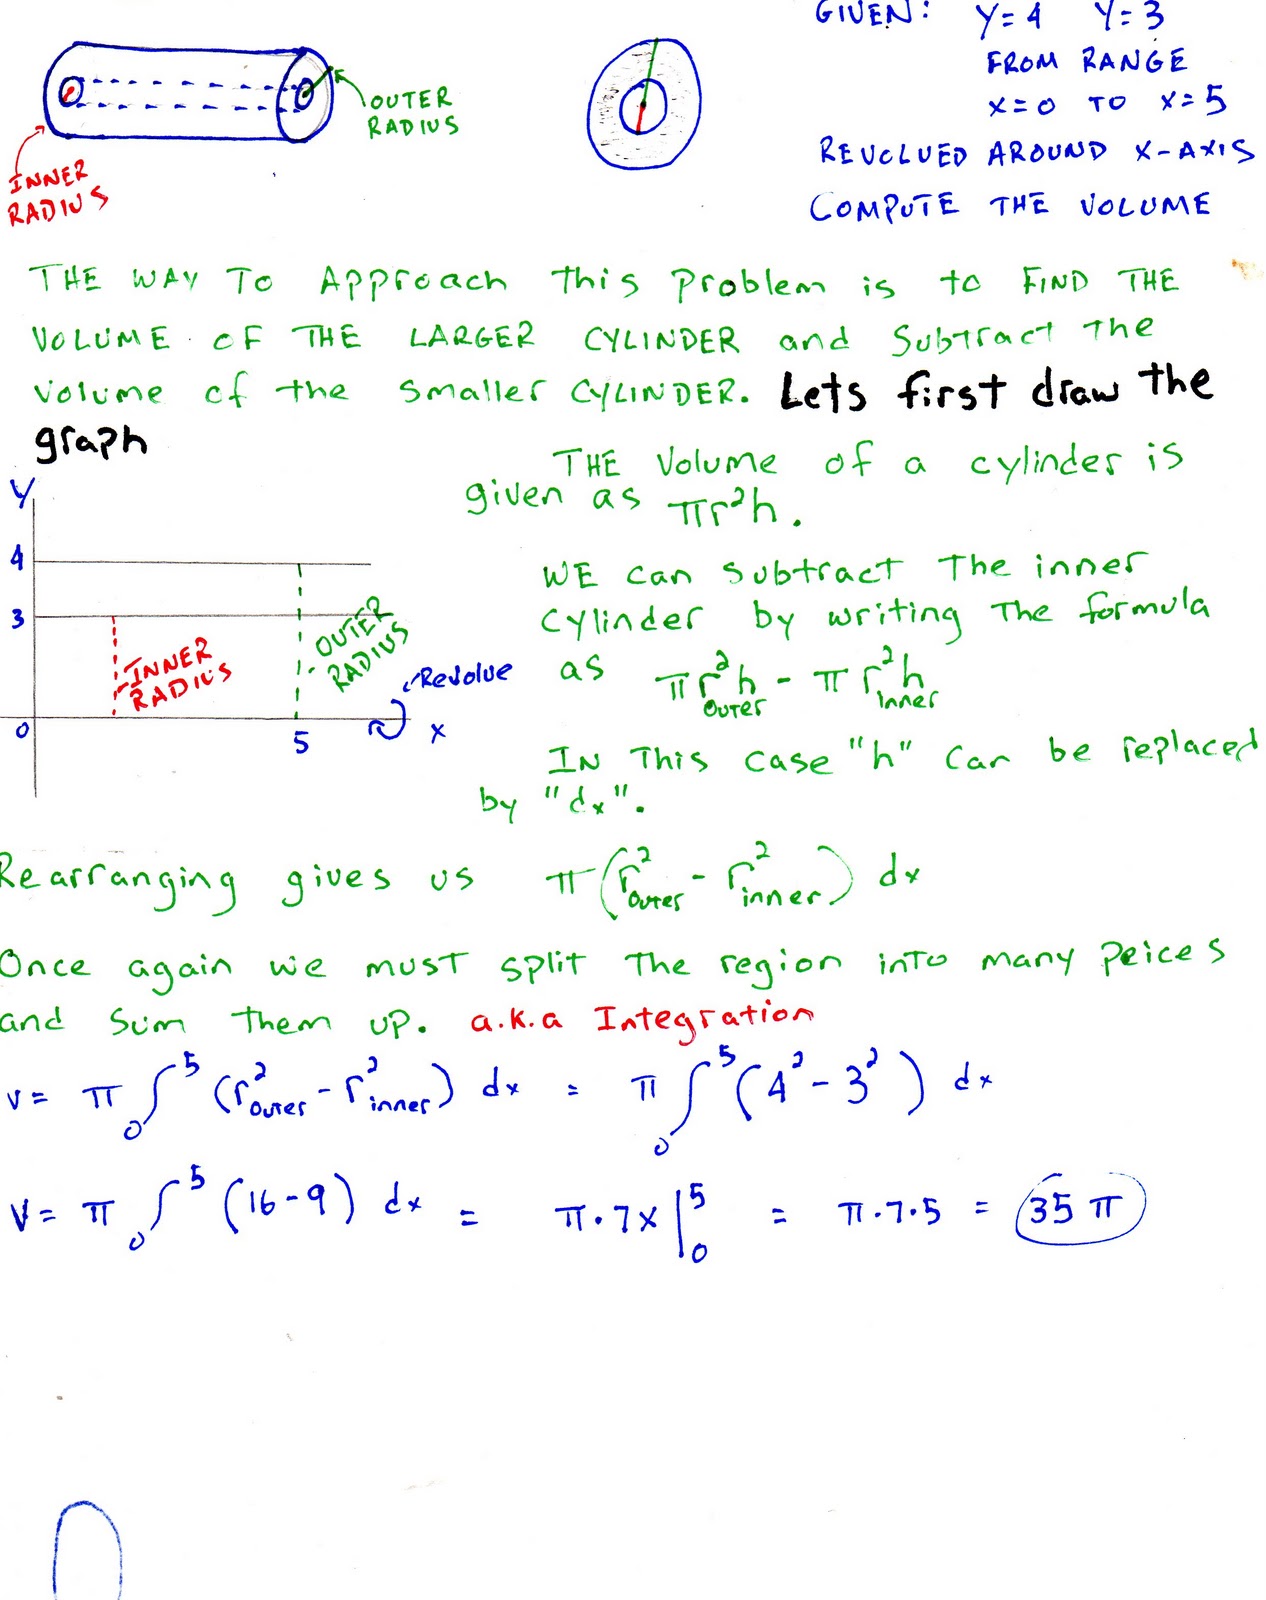 GIVEN: Y=4 Y=3
FROM RANGE
X=0 TO X=5
REVOLVED AROUND X-AXIS
COMPUTE THE VOLUME
OUTER
RADIUS
INNER
RADIUS
THE WAY TO Approach this Problem is to FIND THE
VOLUME OF THE LARGER CYLINDER and Subtract The
Volume of the smaller CYLINDER. Lets first draw the
graph
THE Volume of a cylinder is
given as πr²h.
Y
4
3
0
5
X
INNER
RADIUS
OUTER
RADIUS
Revolve
WE can subtract The inner
cylinder by writing The formula
as πr²outer h - πr²inner h
IN This case "h" can be replaced
by "dx".
Rearranging gives us π(r²outer - r²inner) dx
Once again we must split The region into many Peices
and sum Them up. a.k.a Integration
V = π ₀∫⁵ (r²outer - r²inner) dx = π ₀∫⁵ (4² - 3²) dx
V = π ₀∫⁵ (16-9) dx = π·7x|⁵₀ = π·7·5 = 35 π